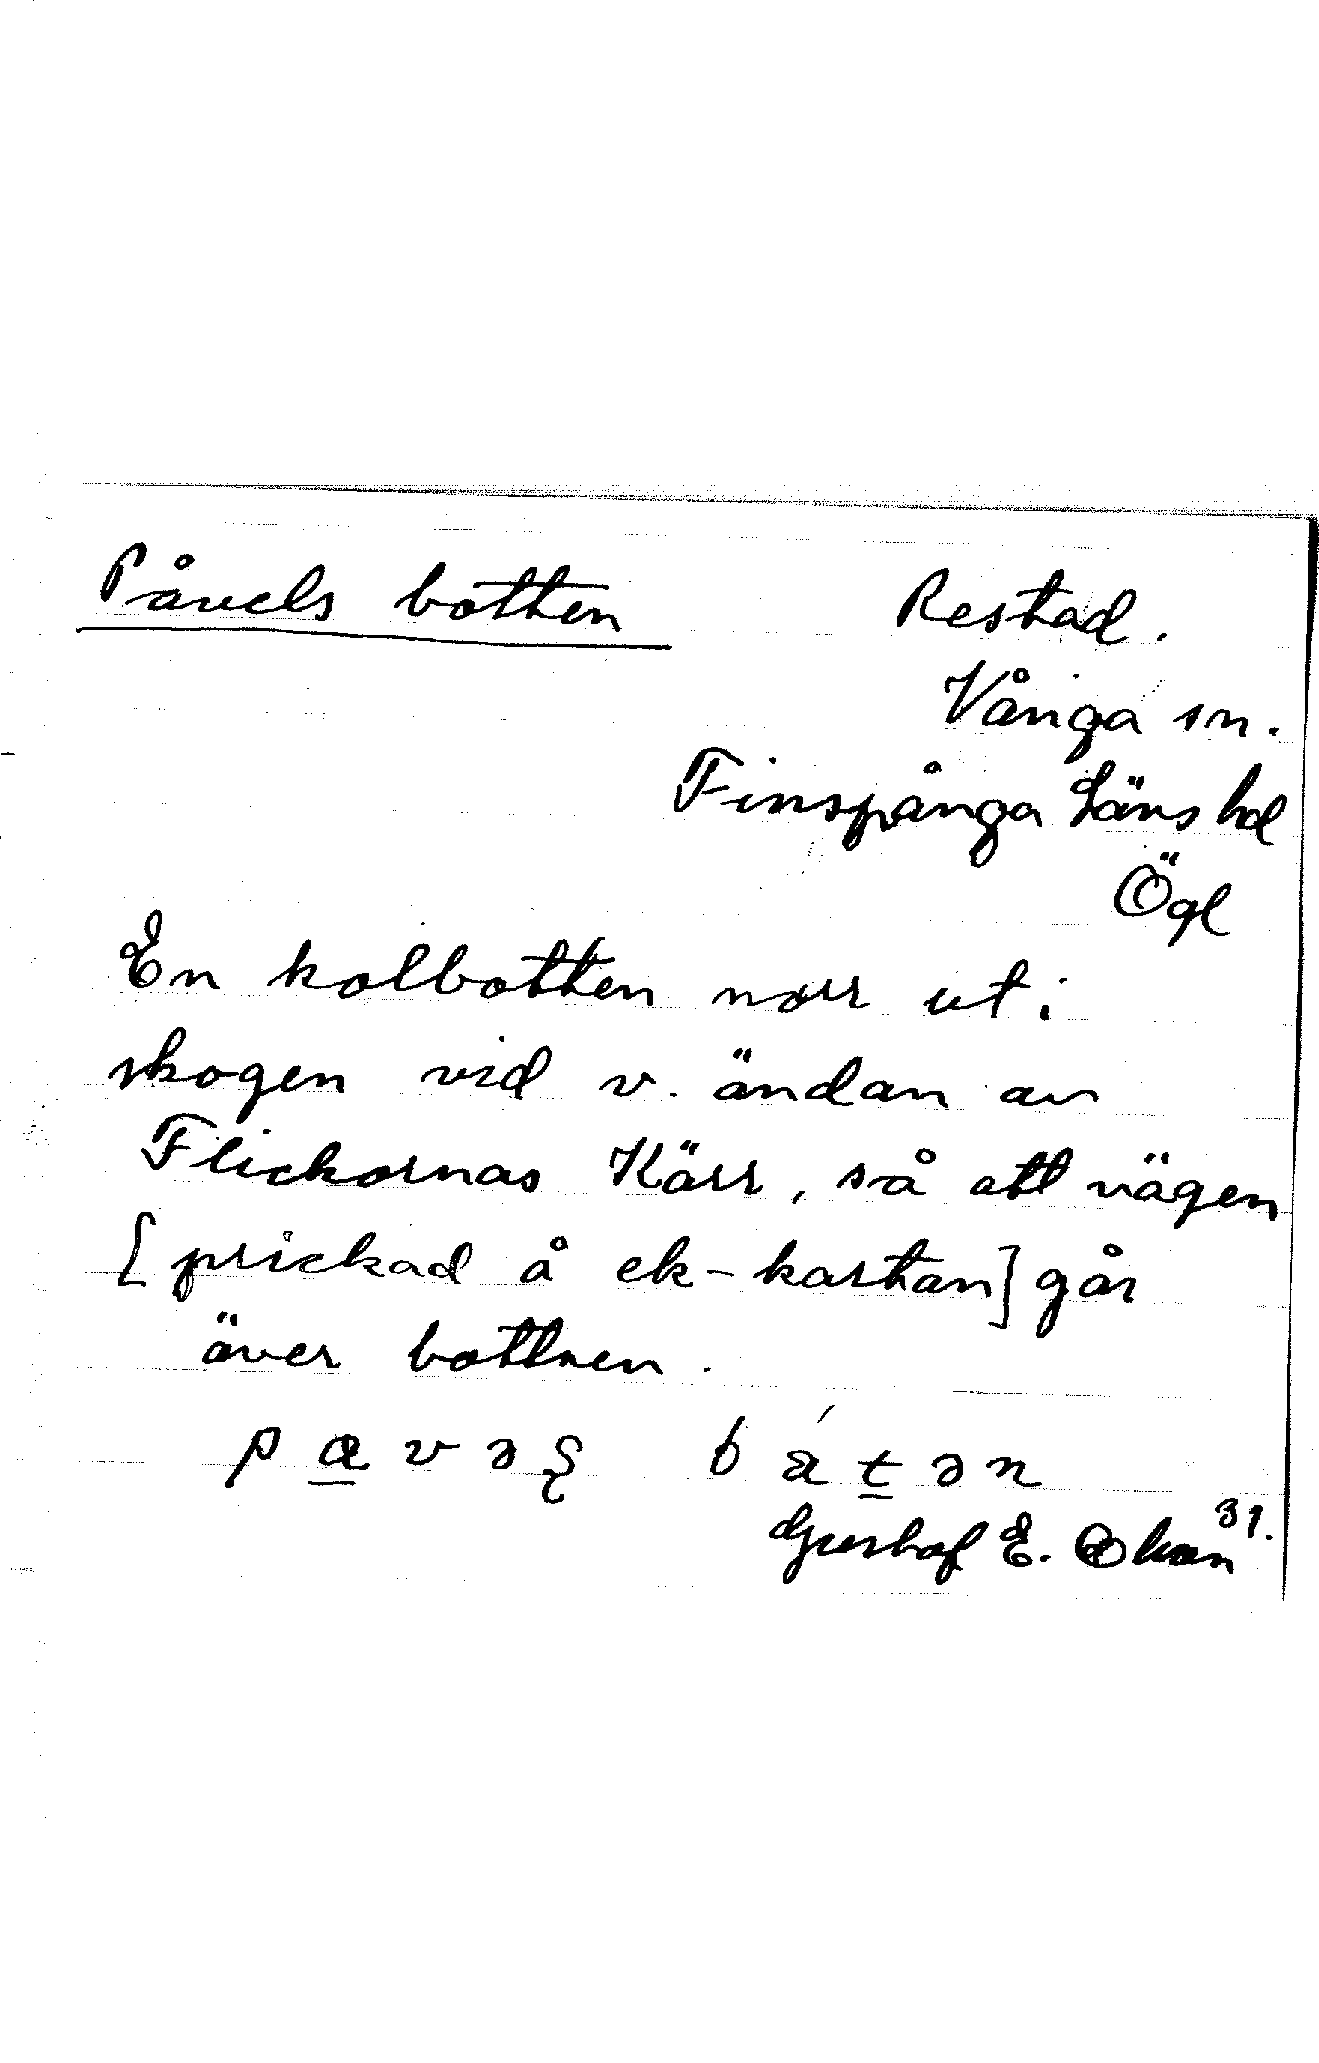 Påvels botten Restad.
Vånga sn.
Finspånga Läns hd
Ögl
En kolbotten norr ut i
skogen vid v. ändan av
Flickornas Kärr, så att vägen
[prickad å ek-kartan] går
över bottnen.
Gustaf E. 31.